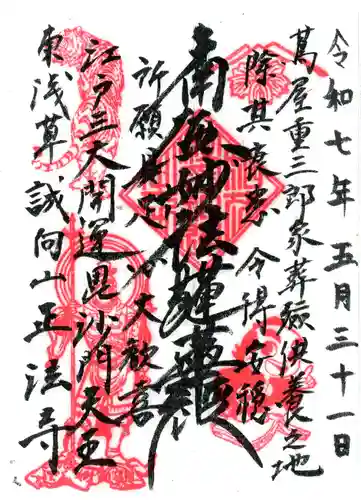 令和七年五月三十一日
蔦屋重三郎家葬殯供養之地
除其衰患令得安穏
南無妙法蓮華経
祈願具足心大歓喜
江戸三大開運毘沙門天王
東浅草誠向山正法寺